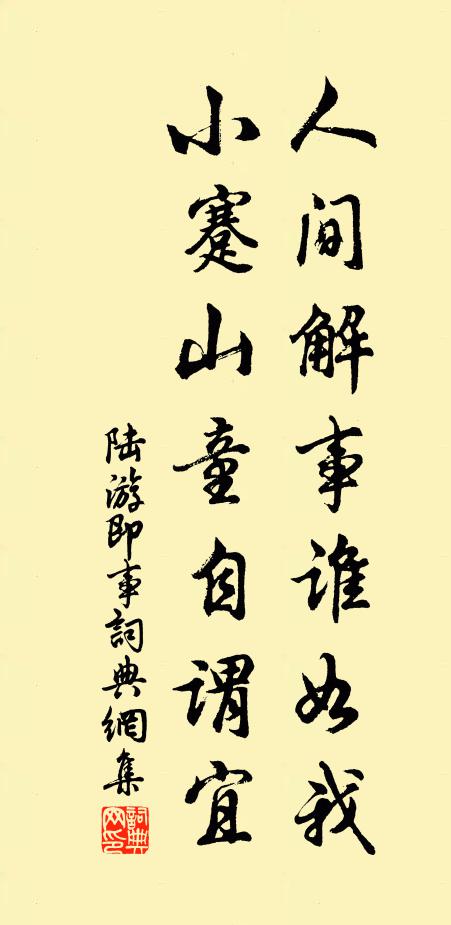 人间解事谁如我
小蹇山童自谓宜
陆游即事词典網集
詞典
网印